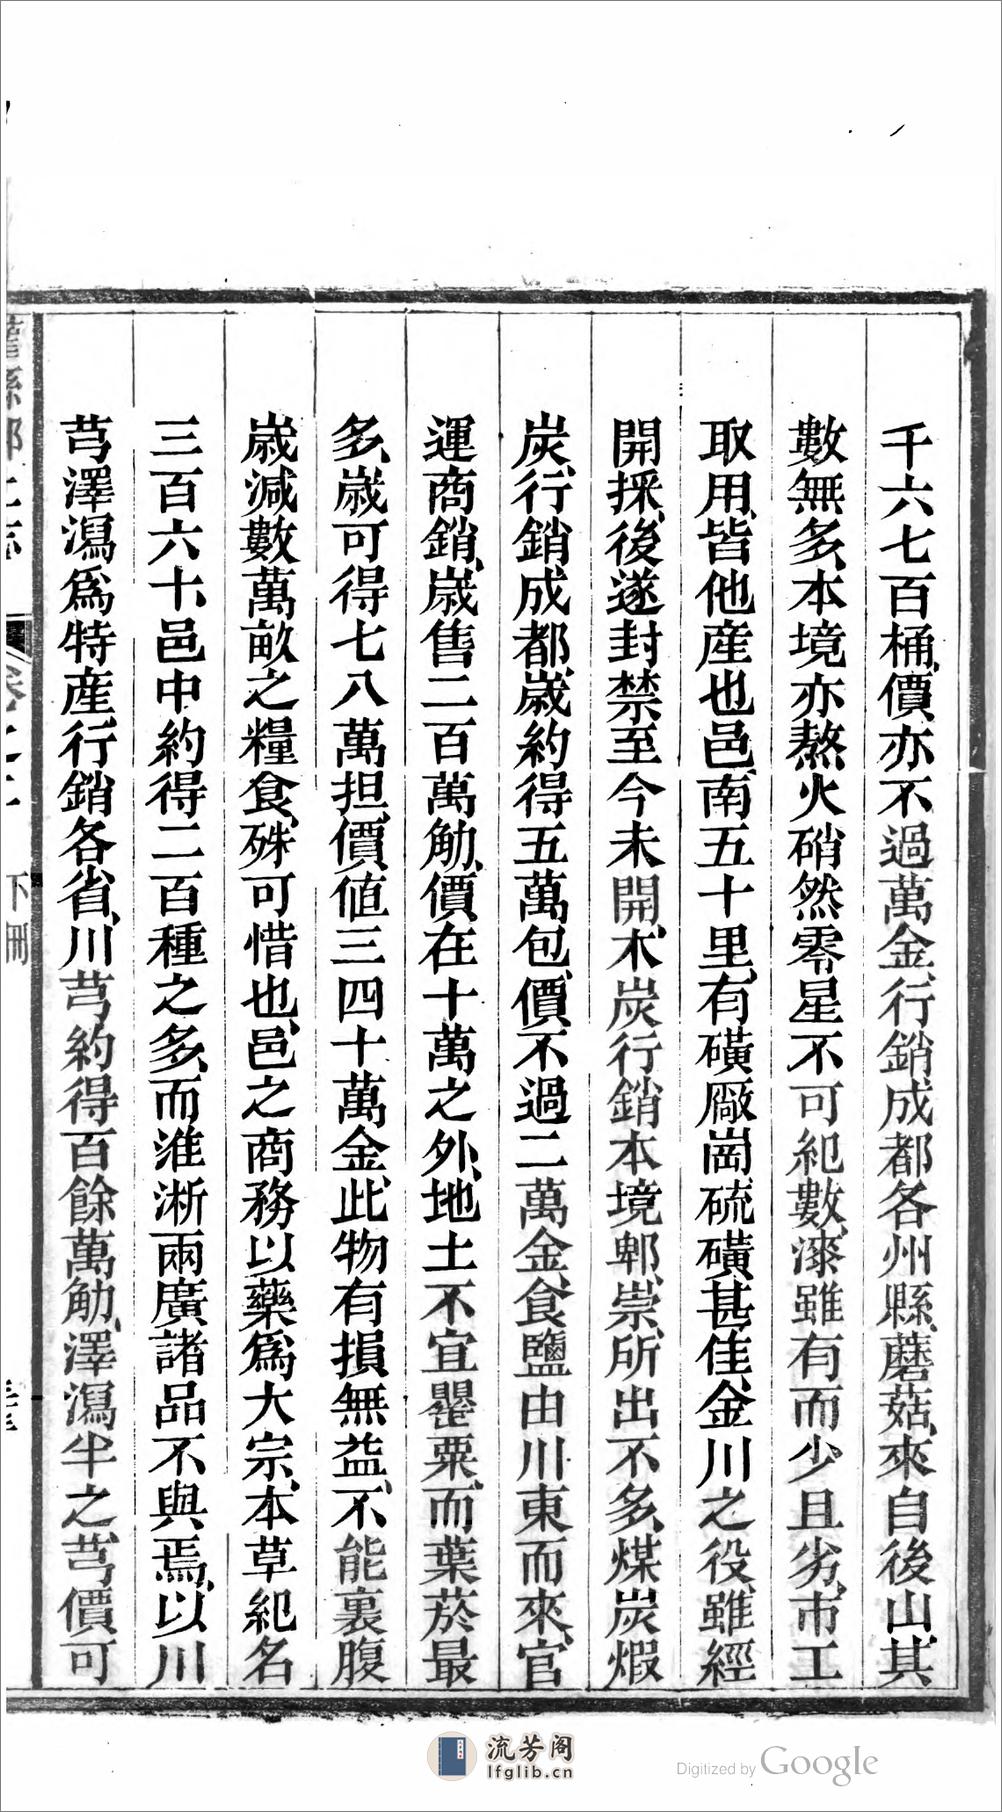 千六七百桶、價亦不過萬金、行銷成都各州縣、蘑菇、來自後山、其
數無多、本境亦熬火硝然零星不可紀數、漆雖有而少且劣、市工
取用、皆他產也邑、南五十里、有磺厰崗硫磺甚佳、金川之役、雖經
開採、後遂封禁至今未開、木炭行銷本境郫、崇、所出不多、煤炭煆
炭、行銷成都、歲約得五萬包、價不過二萬金、食鹽由川東而來、官
運商銷、歲售二百萬觔、價在十萬之外、地土不宜罌粟、而葉菸最
多、歲可得七八萬担、價值三四十萬金、此物有損無益、不能裏腹
歲減數萬畝之糧食、殊可惜也、邑之商務以藥爲大宗、本草紀名
三百六十、邑中約得二百種之多、而淮浙兩廣諸品不與焉、以川
芎澤瀉爲特產行銷各省、川芎約得百餘萬觔、澤瀉半之、芎價可
卷之二 下冊
流芳阁
lfglib.cn
Digitized by Google